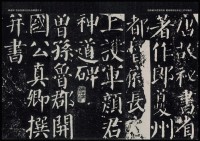 唐故秘書省
著作郎夔州
都督府長史
上護軍顏君
神道碑
曾孫魯郡開
國公真卿撰
并書